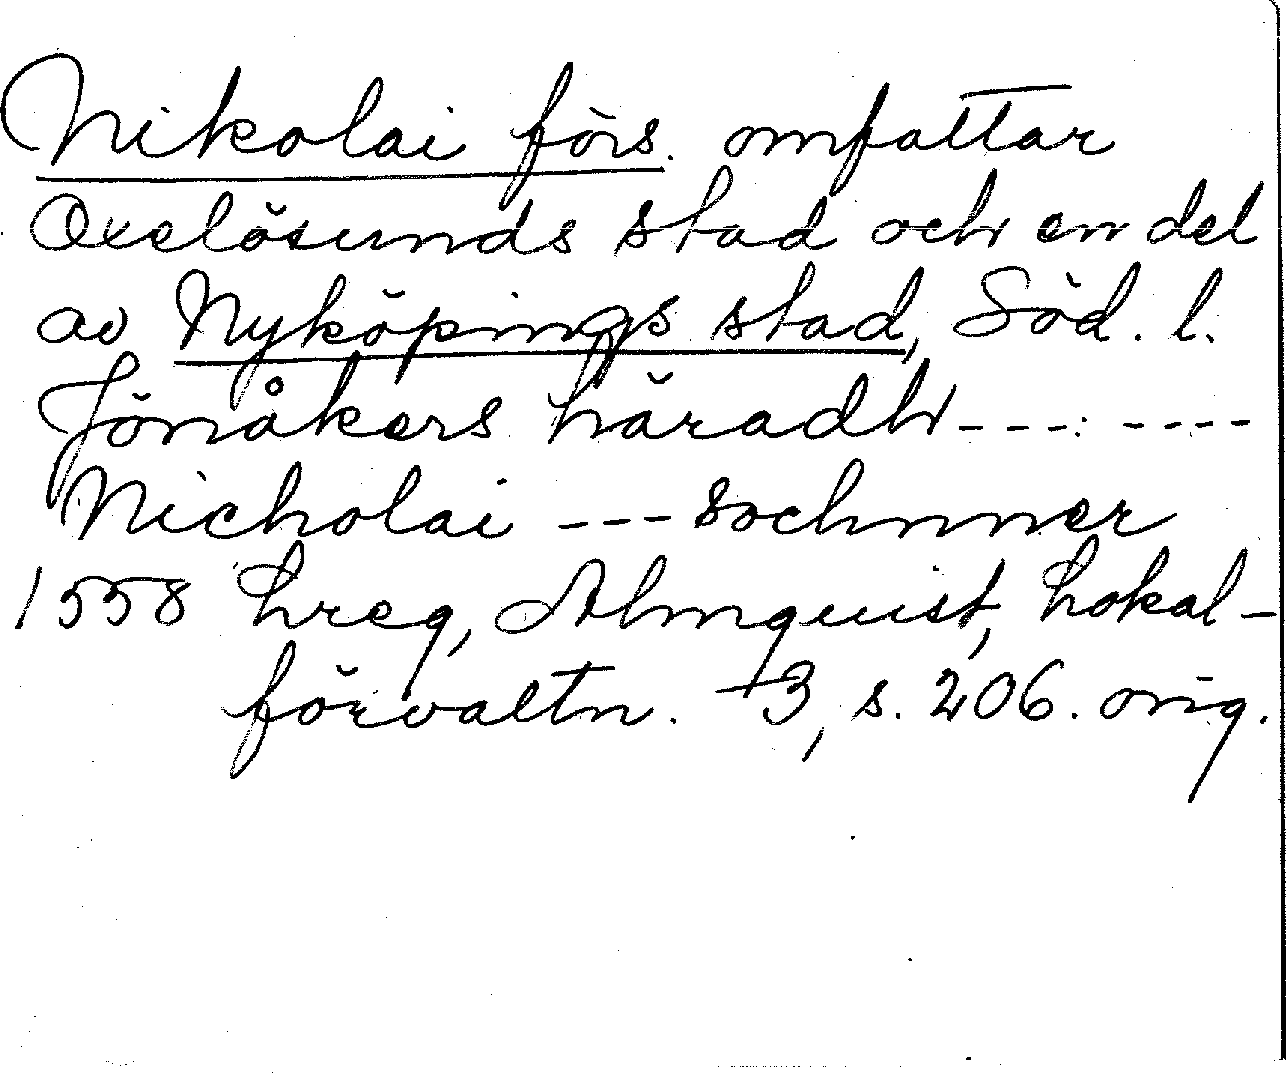 Nikolai förs. omfattar
Oxelösunds stad och en del
av Nyköpings stad, Söd. l.
Jönåkers häradh ---: ----
Nicholai --- sochnner
1558 Lreg, Almquist, Lokal-
förvaltn. 3, s. 206. orig.